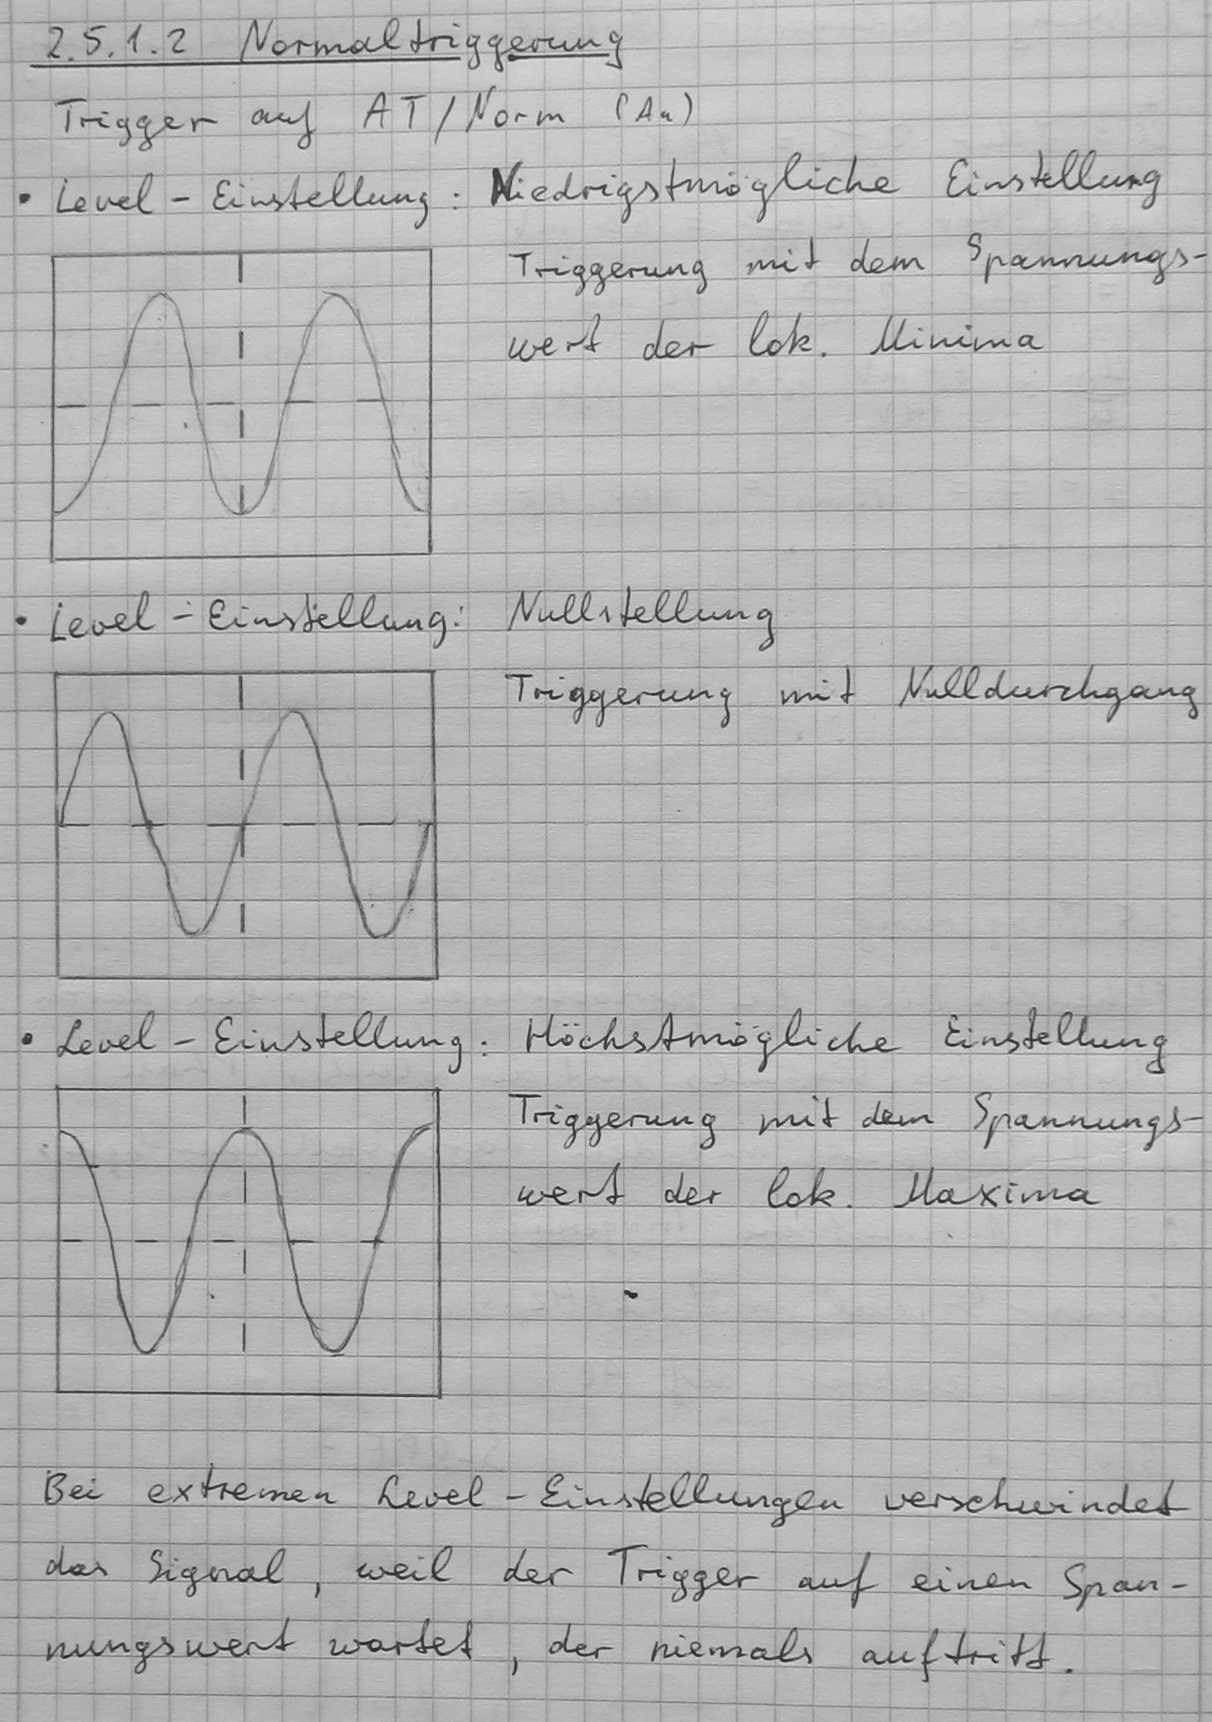 2.5.1.2 Normaltriggerung
Trigger auf AT/Norm (An)
• Level - Einstellung: Niedrigstmögliche Einstellung
Triggerung mit dem Spannungs-
wert der lok. Minima
• Level - Einstellung: Nullstellung
Triggerung mit Nulldurchgang
• Level - Einstellung: Höchstmögliche Einstellung
Triggerung mit dem Spannungs-
wert der lok. Maxima
Bei extremen Level - Einstellungen verschwindet
das Signal, weil der Trigger auf einen Span-
nungswert wartet, der niemals auftritt.